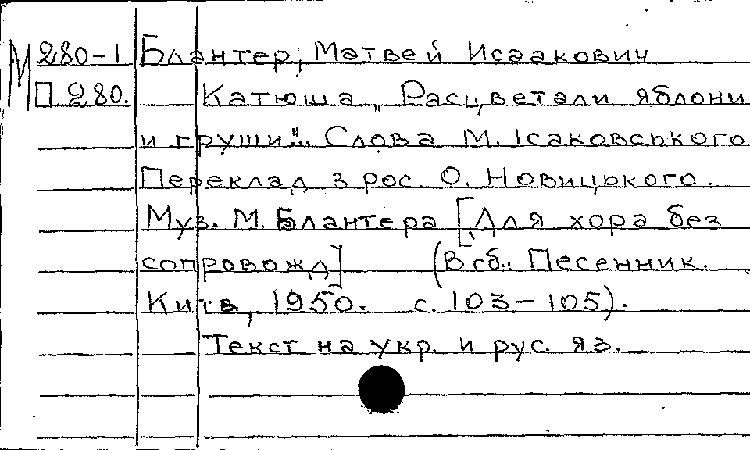 М 280-1 Блантер, Матвей Исаакович
П 280. Катюша „Расцветали яблони
и груши"... Слова М. Ісаковського
Переклад з рос. О. Новицького.
Муз. М. Блантера [Для хора без
сопровожд] (В сб.: Песенник.
Київ, 1950. с. 103-105).
Текст на укр. и рус. яз.